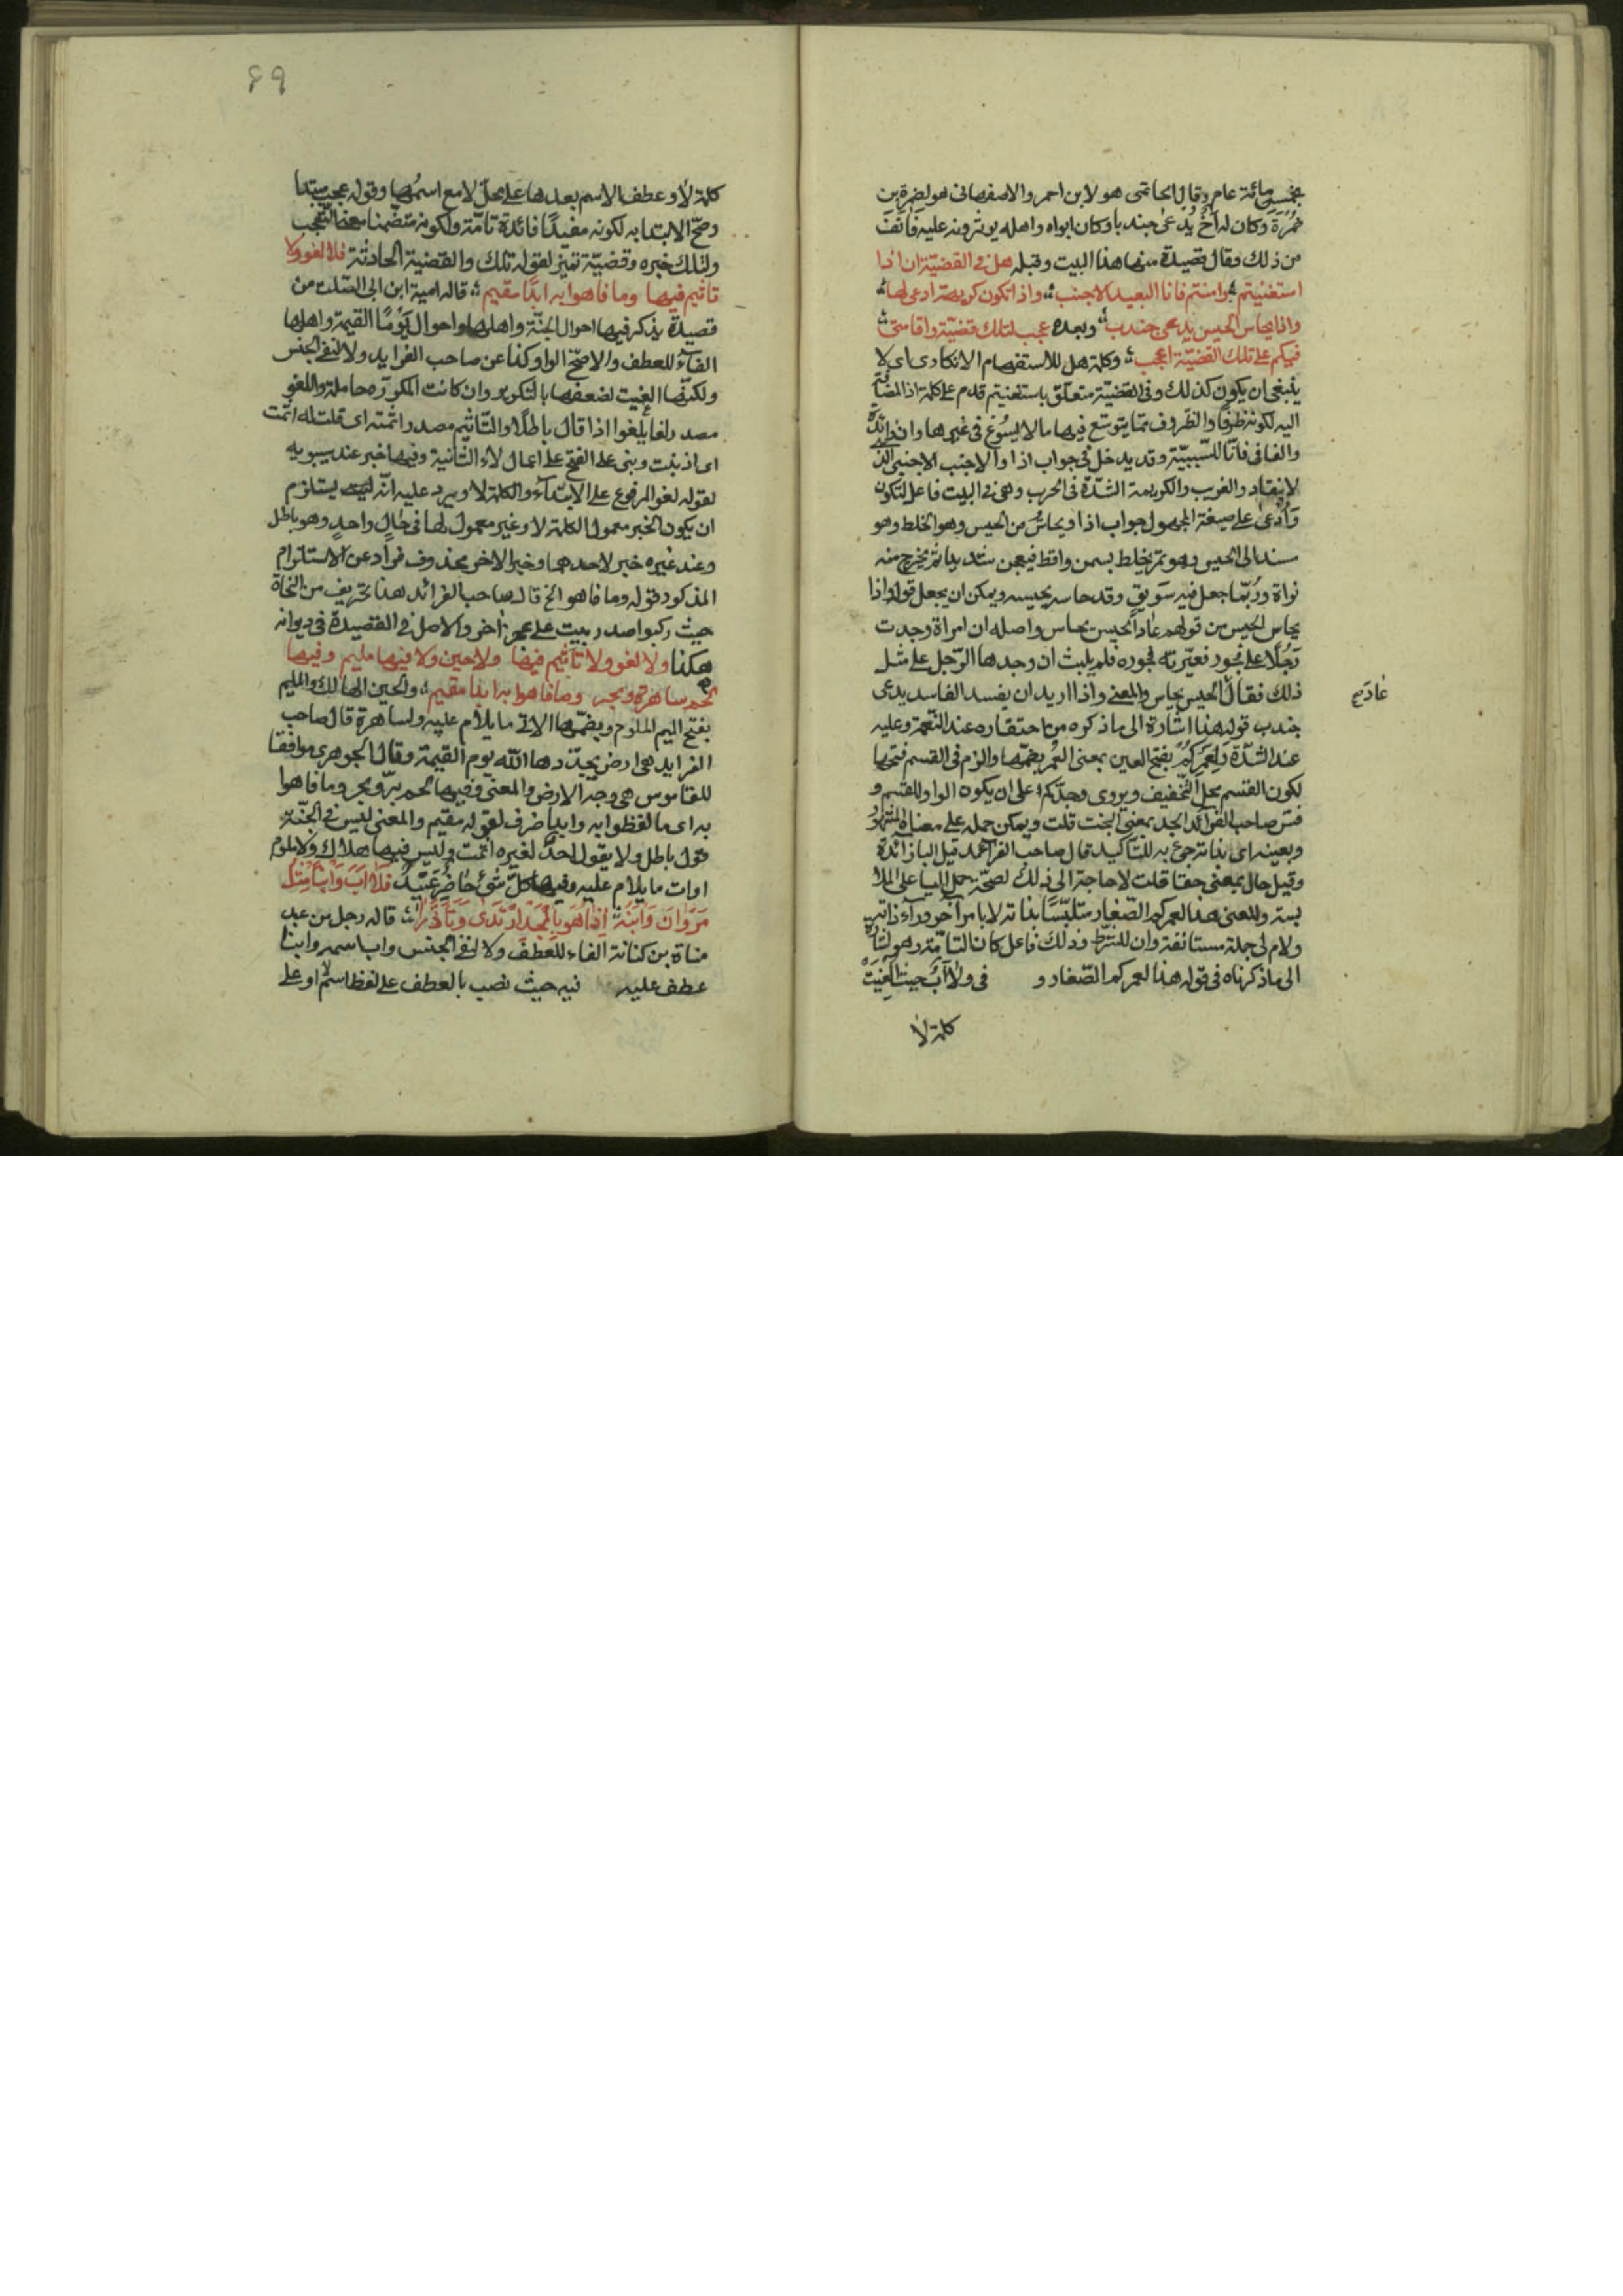 بخمسمائة عام وقال الحاتمى هو لابن احمر والاصفهانى هو لضمرة بن
ضمرة وكان له اخ يدعى جندبا وكان ابواه واهله يوثرونه عليه فانف
من ذلك وقال قصيدة منها هذا البيت وقبله هل فى القضية ان اذا
استغنيتم وامنتم فانا البعيد الاجنب واذا تكون كريهة ادعى لها
واذا يحاس الحيس يدعى جندب وبعده عجب لتلك قضية واقامتى
فيكم على تلك القضية اعجب وكلمة هل للاستفهام الانكارى اى لا
ينبغى ان يكون كذلك وفى القضية متعلق باستغنيتم قدم على كلمة اذا المضافة
اليه لكونه ظرفا والظروف مما يتوسع فيها ما لا يسوغ فى غيرها وان زائدة
والفا فى فانا للسببية وقد يدخل فى جواب اذا والاجنب الاجنبى الذى
لا ينقاد والغريب والكريهة الشدة فى الحرب وهى فى البيت فاعل لتكون
وادعى على صيغة المجهول جواب اذا ويحاس من الحيس وهو الخلط وهو
مسند الى الحيس وهو تمر يخلط بسمن واقط فيعجن شديدا ثم يخرج منه
نواه وربما جعل فيه سويق وقد حاسه يحيسه ويمكن ان يجعل قوله واذا
يحاس الحيس من قولهم عاد الحيس يحاس واصله ان امراة وجدت
رجلا على فجور فعيرته فجوره فلم يلبث ان وجدها الرجل على مثل
ذلك فقال الحيس يحاس والمعنى واذا اريد ان يفسد الفاسد يدعى
جندب قوله هذا اشارة الى ما ذكره من احتقاره عند النعمة وعليه
عند الشدة ولعمركم بفتح العين بمعنى العمر بضمها والزم فى القسم فتحها
لكون القسم محل التخفيف ويروى وجدكم على ان يكون الواو للقسم و
فسر صاحب الفرائد الجد بمعنى البخت قلت ويمكن حمله على معناه المشهور
وبعينه اى بذاته جئ به للتاكيد قال صاحب الفرائد قيل البا زائدة
وقيل حال بمعنى حقا قلت لا حاجة الى ذلك لصحة حمل البا على الملا
بسة والمعنى هذا لعمركم الصغار متلبسا بذاته لا بامر آخر ورآء ذاته
ولا ام لى جملة مستانفة وان للشرط وذلك فاعل كان التامة وهو اشارة
الى ما ذكرناه فى قوله هذا لعمركم الصغار و فى ولا اب حيث الغيت
كلمة لا
كلمة لا وعطف الاسم بعدها على محل لا مع اسمها وقوله عجب مبتدا
وصح الابتدا به لكونه مفيدا فائدة تامة ولكونه متضمنا معنى التعجب
ولتلك خبره وقضية تميز لقوله تلك والقضية الحادثة فلا لغو ولا
تاثيم فيها وما فاهوا به ابدا مقيم قاله امية ابن ابى الصلت من
قصيدة يذكر فيها احوال الجنة واهلها واحوال يوما القيمة واهلها
الفآء للعطف والاصح الواو كذا عن صاحب الفرايد ولا لنفى الجنس
ولكنها الغيت لضعفها بالتكرير وان كانت المكررة حاملة واللغو
مصدر لغا يلغوا اذا قال باطلا والتاثيم مصدر اثمته اى قلت له اثمت
اى اذنبت وبنى على الفتح على اعمال لاء الثانية وفيها خبر عند سيبويه
لقوله لغو المرفوع على الابتدآء والكلمة لا ويرد عليه انه يستلزم
ان يكون الخبر معمولا لكلمة لا وغير معمول لها فى حال واحد وهو باطل
وعند غيره خبر لاحدهما وخبر الاخر محذوف فرارا عن الاستلزام
المذكور قوله وما فاهوا الخ قال صاحب الفرائد هذا تحريف من النحاة
حيث ركبوا صدر بيت على عجز آخر والاصل فى القصيدة فى ديوانه
هكذا ولا لغو ولا تاثيم فيها ولا حين ولا فيها مليم وفيها
لحم ساهرة وبحر وما فاهوا به ابدا مقيم والحين الهالك والمليم
بفتح الميم الملوم وبضمها الاتى ما يلام عليه ولساهرة قال صاحب
الفرايد هى ارض يجددها الله يوم القيمة وقال الجوهرى موافقا
للقاموس هى وجه الارض والمعنى وفيها لحم بر وبحر وما فاهوا
به اى ما لفظوا به وابدا ظرف لقوله مقيم والمعنى ليس فى الجنة
قول باطل ولا يقول احد لغيره اثمت وليس فيها هلاك ولا ملوم
اوات ما يلام عليه وفيها كل شئ حاضر عتيد فلا اب وابنا مثل
مروان وابنه اذا هو بالمجد ارتدى وتازرا قاله رجل من عبد
مناة بن كنانة الفاء للعطف ولا لنفى الجنس واب اسمه وابنا
عطف عليه فيه حيث نصب بالعطف على لفظ اسم لا او على